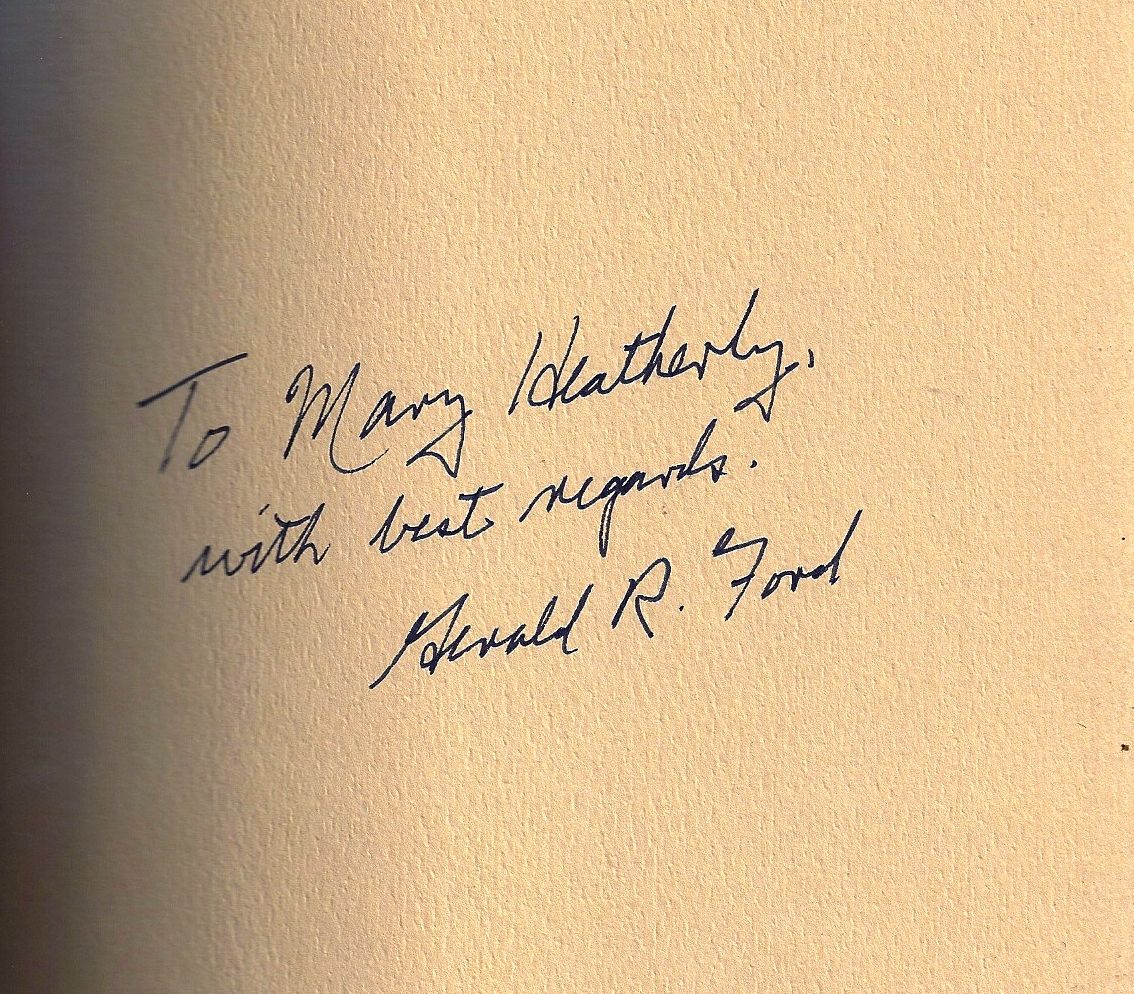 To Mary Heatherly,
with best regards.
Gerald R. Ford